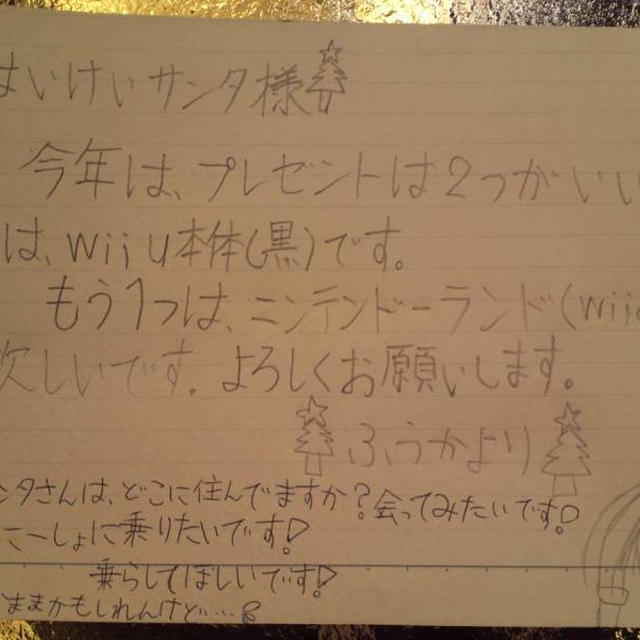 はいけいサンタ様
今年は、プレゼントは2つがいい
は、wii u本体(黒)です。
もう1つは、ニンテンドーランド(wiiu
欠しいです。よろしくお願いします。
ふうかより
ンタさんは、どこに住んでますか?会ってみたいです!
こーしょに乗りたいです!
乗らしてほしいです!
ままかもしれんけど……